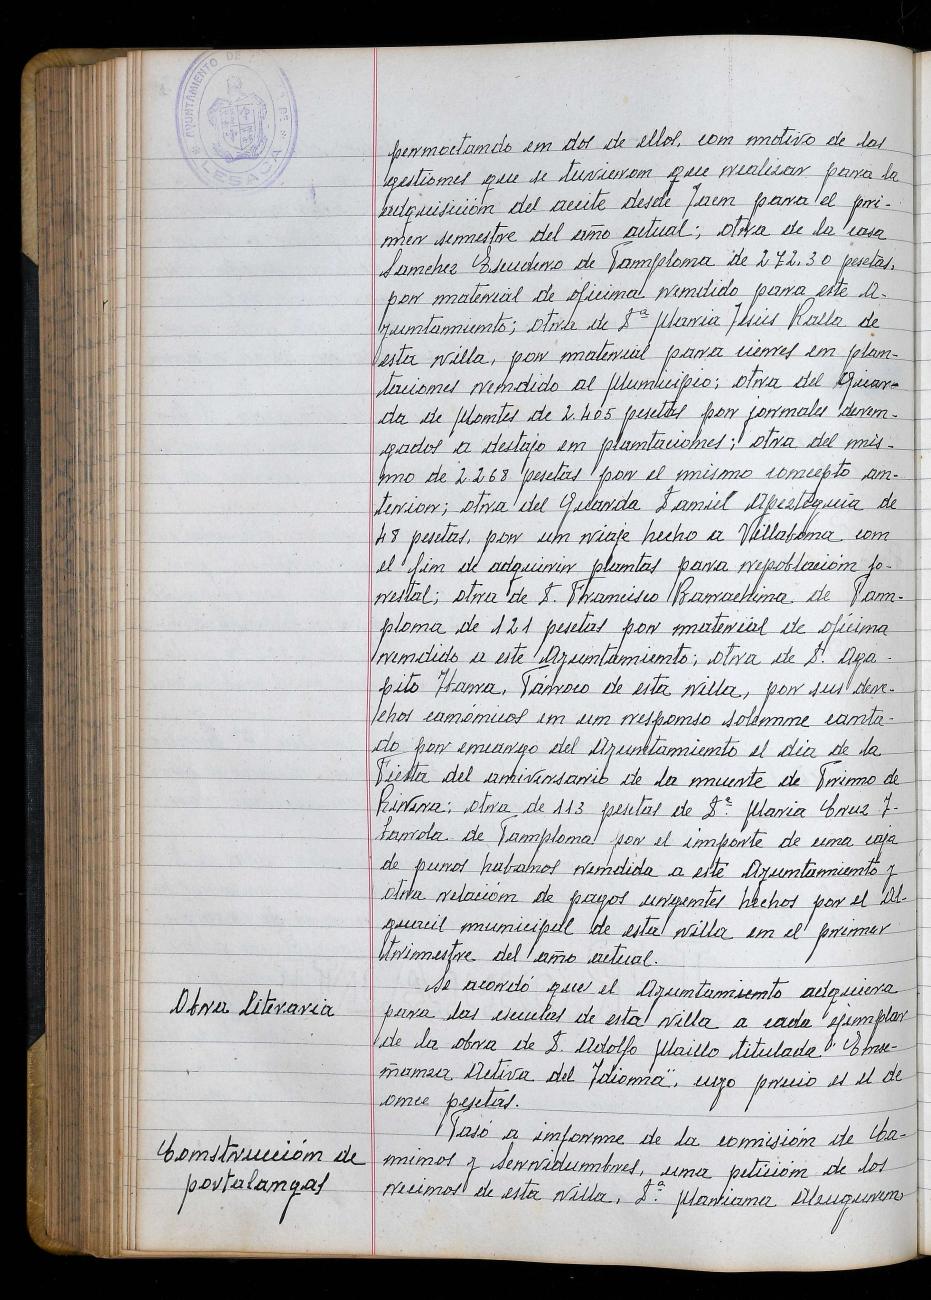 AYUNTAMIENTO DE
DE
LESACA
pernoctando en dos de ellos, con motivo de las
gestiones que se tuvieron que realizar para la
adquisición del aceite desde Jaen para el pri-
mer semestre del año actual; otra de la casa
Sanchez Escudero de Pamplona de 272,30 pesetas,
por material de oficina vendido para este A-
yuntamiento; otra de Dª Maria Jesús Ralla de
esta villa, por material para cierres en plan-
taciones vendido al Municipio; otra del Guar-
da de Montes de 2.405 pesetas por jornales deven-
gados a destajo en plantaciones; otra del mis-
mo de 2.268 pesetas por el mismo concepto an-
terior; otra del Guarda Daniel Apezteguia de
48 pesetas, por un viaje hecho a Villabona con
el fin de adquirir plantas para repoblación fo-
restal; otra de D. Francisco Barrachina de Pam-
plona de 121 pesetas por material de oficina
vendido a este Ayuntamiento; otra de D. Aga-
pito Ibarra, Párroco de esta villa, por sus dere-
chos canónicos en un responso solemne canta-
do por encargo del Ayuntamiento el dia de la
Fiesta del aniversario de la muerte de Primo de
Rivera; otra de 113 pesetas de Dª. Maria Cruz
de Pamplona por el importe de una caja
de puros habanos vendida a este Ayuntamiento y
otra relación de pagos urgentes hechos por el Al-
guacil municipal de esta villa en el primer
trimestre del año actual.
Obra literaria
Se acordó que el Ayuntamiento adquiera
para las escuelas de esta villa a cada ejemplar
de la obra de D. Adolfo Maillo titulada "Ense-
ñanza Activa del Idioma", cuyo precio es el de
once pesetas.
Construcción de
portalangas
Pasó a informe de la comisión de Ca-
minos y Servidumbres, una petición de los
vecinos de esta villa, Dª. Mariana